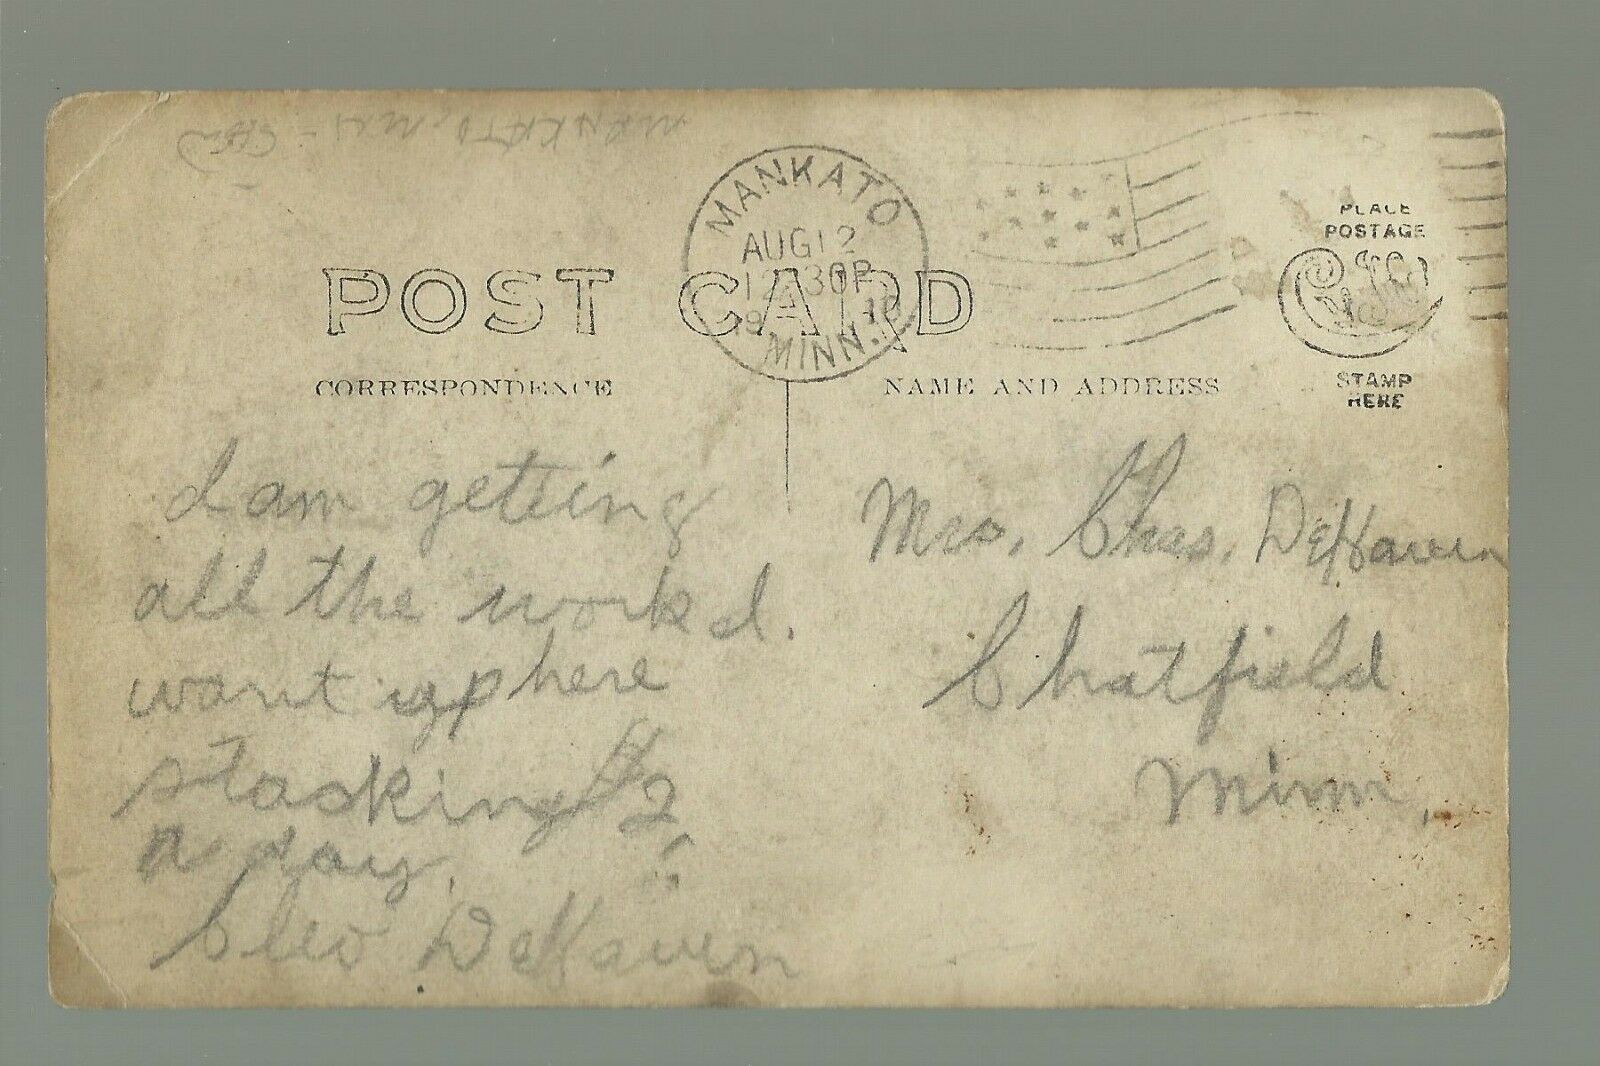 MANKATO
AUG 12
12 30 P
19 10
MINN.
POST CARD
CORRESPONDENCE
NAME AND ADDRESS
PLACE
POSTAGE
STAMP
HERE
I am geteing
all the work I.
want up here
stacking $2
a day.
Cleo DeHaven
Mrs. Chas. DeHaven
Chatfield
Minn.